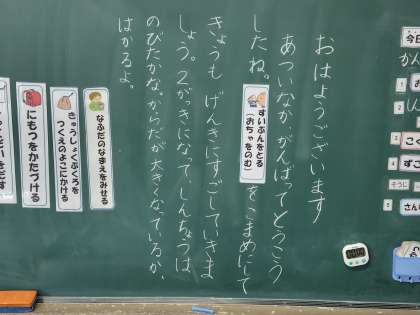 今日
かん
1 お
2
3 こく
4 ずこ
そうじ
5 さん
おはようございます
あついなか、がんばってとうこう
したね。すいぶんをとる(おちゃをのむ)をこまめにして
きょうも げんきにすごしていきま
しょう。2がっきになって、しんちょうは
のびたかな。からだが大きくなっているか、
はかるよ。
なふだのなまえをみせる
きゅうしょくぶくろを
つくえのよこにかける
にもつをかたづける